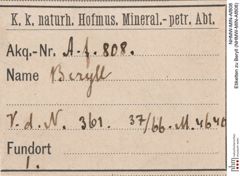 K. k. naturh. Hofmus. Mineral.-petr. Abt.
Akq.-Nr. A. f. 808.
Name Beryll
V. d. N. 361. 37/66. M. 4640
Fundort
1.
NHMW-MIN-A808
Etiketten zu Beryll (NHMW-MIN-A808)